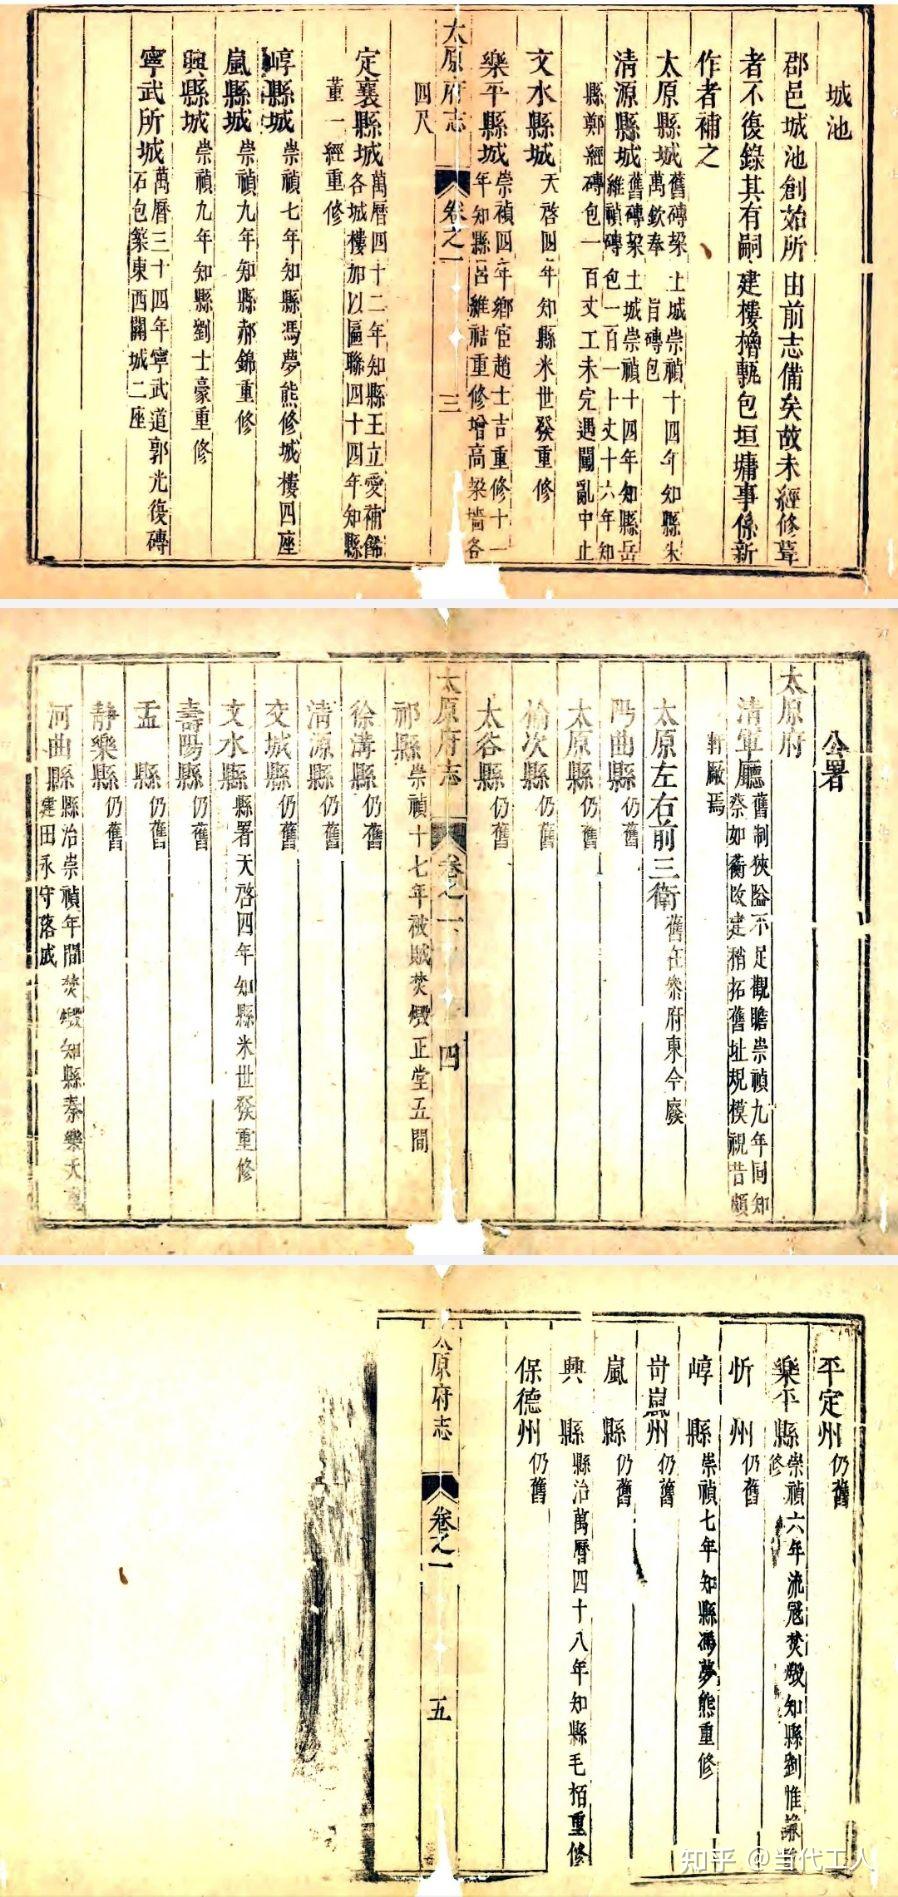 城池
郡邑城池創始所由前志備矣故未經修葺
者不復錄其有嗣建樓櫓甎包垣墉事係新
作者補之
太原縣城舊磚梁土城崇禎十四年知縣朱
萬欽奉旨磚包
清源縣城舊磚梁土城崇禎十四年知縣岳
維禎磚包一百一十丈十六年知
縣鄭經磚包一百丈工未完遇闖亂中止
文水縣城天啓四年知縣米世發重修
樂平縣城崇禎四年鄉宦趙士吉重修十一
年知縣呂維祮重修增高梁墻各
四尺
太原府志 卷之一 三
定襄縣城萬曆四十二年知縣王立愛補餙
各城樓加以匾聯四十四年知縣
董一經重修
崞縣城崇禎七年知縣馮夢熊修城樓四座
嵐縣城崇禎九年知縣郝錦重修
興縣城崇禎九年知縣劉士豪重修
寧武所城萬曆三十四年寧武道郭光復磚
石包築東西關城二座
公署
太原府
清軍廳舊制狹隘不足觀瞻崇禎九年同知
蔡如蘅改建稍拓舊址規模視昔頗
軒厰焉
太原左右前三衛舊在察府東今廢
陽曲縣仍舊
太原縣仍舊
榆次縣仍舊
太谷縣仍舊
太原府志 卷之一 四
祁縣崇禎十七年被賊焚燬正堂五間
徐溝縣仍舊
清源縣仍舊
交城縣仍舊
文水縣縣署天啓四年知縣米世發重修
壽陽縣仍舊
盂縣仍舊
靜樂縣仍舊
河曲縣縣治崇禎年間焚燬知縣秦樂天重
建田永守落成
平定州仍舊
樂平縣崇禎六年流寇焚燬知縣劉惟
修
忻州仍舊
崞縣崇禎七年知縣馮夢熊重修
岢嵐州仍舊
嵐縣仍舊
興縣縣治萬曆四十八年知縣毛栢重修
保德州仍舊
太原府志 卷之一 五
知乎 @当代工人